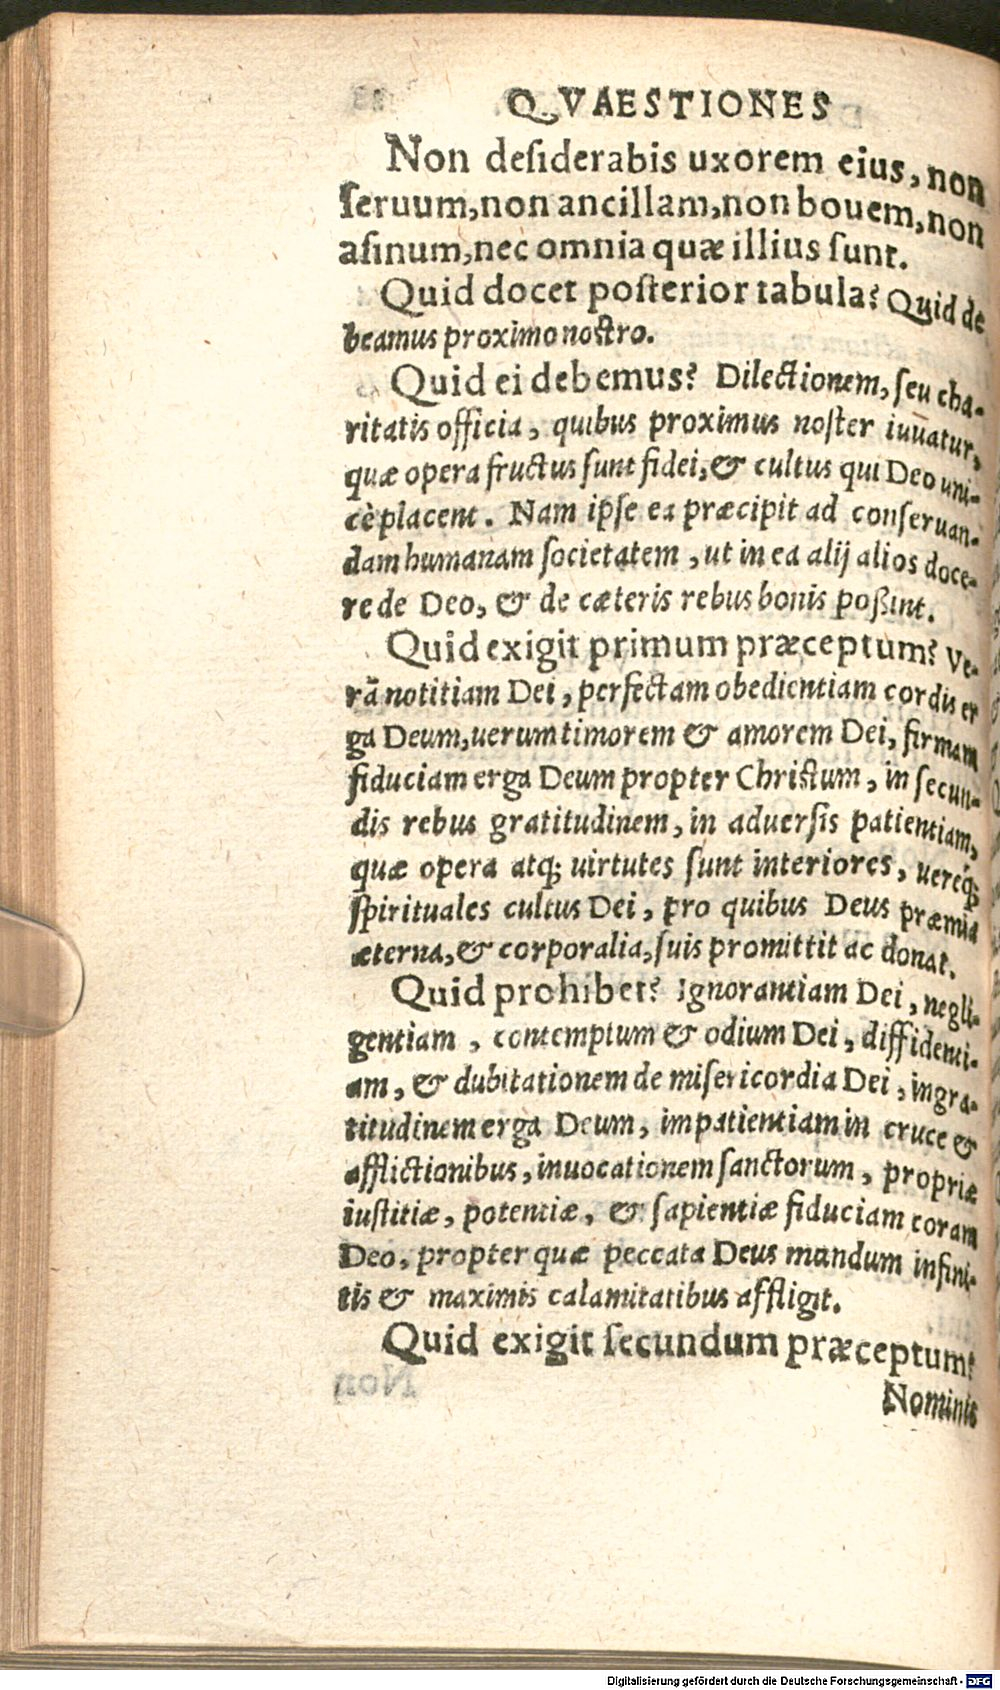 QVAESTIONES
Non deſiderabis uxorem eius, non
ſeruum, non ancillam, non bouem, non
aſinum, nec omnia quæ illius ſunt.
Quid docet poſterior tabula? Quid de
beamus proximo noſtro.
Quid ei debemus? Dilectionem, ſeu cha-
ritatis officia, quibus proximus noſter iuuatur,
quæ opera fructus ſunt fidei, & cultus qui Deo uni-
cè placent. Nam ipſe ea præcipit ad conſeruan-
dam humanam ſocietatem, ut in ea alij alios doce-
re de Deo, & de cæteris rebus bonis poßint.
Quid exigit primum præceptum? Ve-
rā notitiam Dei, perfectam obedientiam cordis er
ga Deum, uerum timorem & amorem Dei, firmam
fiduciam erga Deum propter Chriſtum, in ſecun-
dis rebus gratitudinem, in aduerſis patientiam,
quæ opera atq; uirtutes ſunt interiores, uereq́;
ſpirituales cultus Dei, pro quibus Deus præmia
æterna, & corporalia, ſuis promittit ac donat.
Quid prohibet? Ignorantiam Dei, negli-
gentiam, contemptum & odium Dei, diffidenti-
am, & dubitationem de miſericordia Dei, ingra-
titudinem erga Deum, impatientiam in cruce &
afflictionibus, inuocationem ſanctorum, propriæ
iuſtitiæ, potentiæ, & ſapientiæ fiduciam coram
Deo, propter quæ peccata Deus mundum infini-
tis & maximis calamitatibus affligit.
Quid exigit ſecundum præceptum?
Nominis
Digitalisierung gefördert durch die Deutsche Forschungsgemeinschaft - DFG